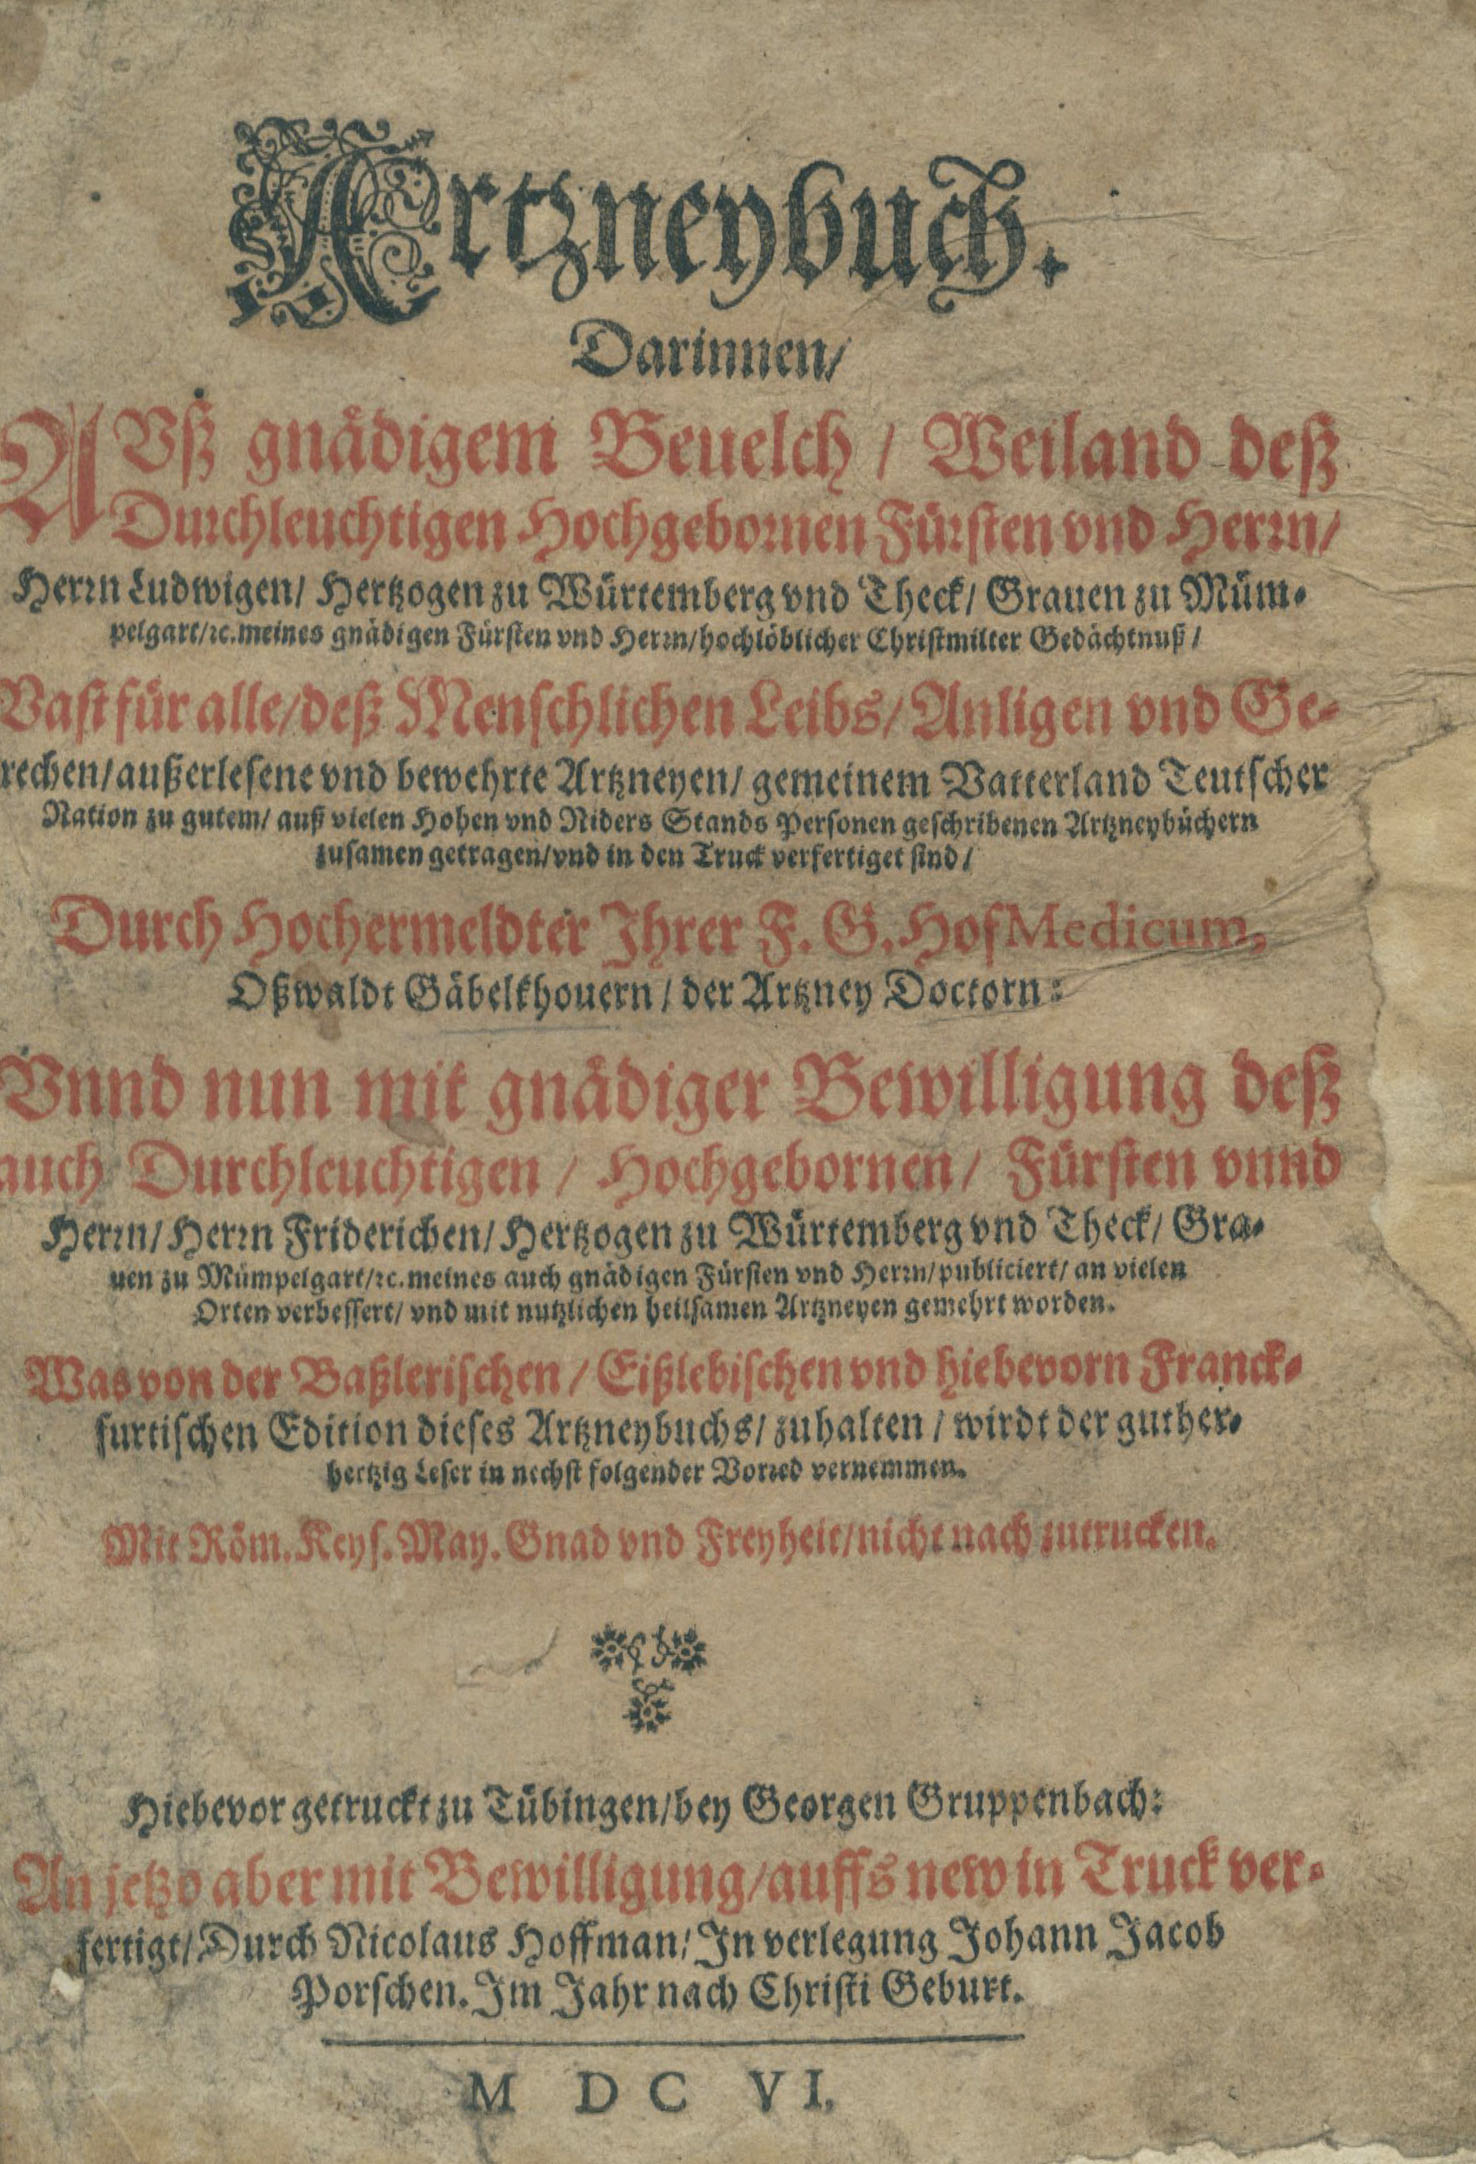 Artzneybuch.
Darinnen/
AVß gnädigem Beuelch / Weiland deß
Durchleuchtigen Hochgebornen Fürsten vnd Herrn/
Herrn Ludwigen/ Hertzogen zu Würtemberg vnd Theck/ Grauen zu Müm-
pelgart/ꝛc. meines gnädigen Fürsten vnd Herrn/ hochlöblicher Christmilter Gedächtnuß /
Vast für alle/ deß Menschlichen Leibs/ Anligen vnd Ge-
rechen/ außerlesene vnd bewehrte Artzneyen/ gemeinem Vatterland Teutscher
Nation zu gutem/ auß vielen Hohen vnd Niders Stands Personen geschribenen Artzneybüchern
zusamen getragen/ vnd in den Truck verfertiget sind /
Durch Hochermeldter Ihrer F. G. Hof Medicum,
Oßwaldt Gäbelkhouern / der Artzney Doctorn:
Vnnd nun mit gnädiger Bewilligung deß
auch Durchleuchtigen / Hochgebornen/ Fürsten vnnd
Herrn/ Herrn Friderichen/ Hertzogen zu Würtemberg vnd Theck/ Gra-
uen zu Mümpelgart/ꝛc. meines auch gnädigen Fürsten vnd Herrn/ publiciert/ an vielen
Orten verbessert/ vnd mit nutzlichen heilsamen Artzneyen gemehrt worden.
Was von der Baßlerischen / Eißlebischen vnd hiebevorn Franck-
furtischen Edition dieses Artzneybuchs/ zuhalten / wirdt der guther-
hertzig Leser in nechst folgender Vorred vernemmen.
Mit Röm. Keys. May. Gnad vnd Freyheit/ nicht nach zutrucken.
Hiebevor getruckt zu Tübingen/ bey Georgen Gruppenbach:
An jetzo aber mit Bewilligung/ auffs new in Truck ver-
fertigt/ Durch Nicolaus Hoffman/ In verlegung Johann Jacob
Porschen. Im Jahr nach Christi Geburt.
M DC VI.